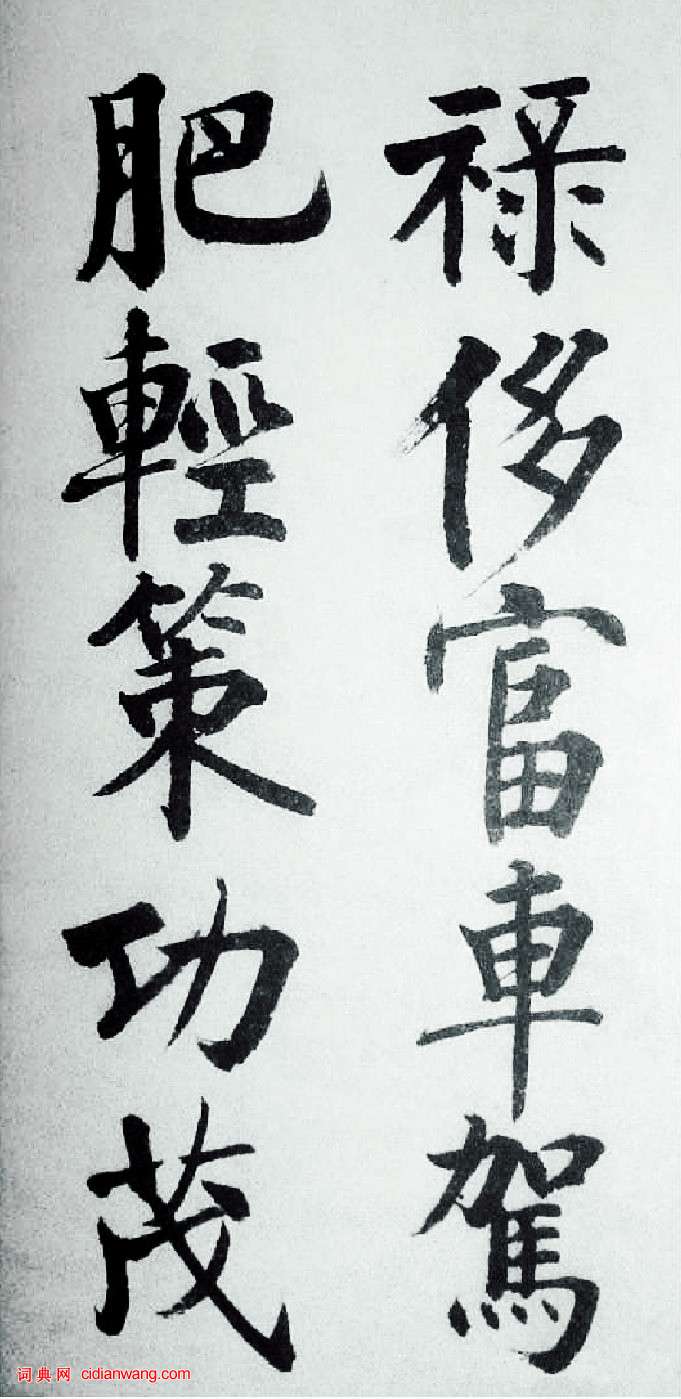 祿侈富車駕
肥輕策功茂
词典网 cidianwang.com